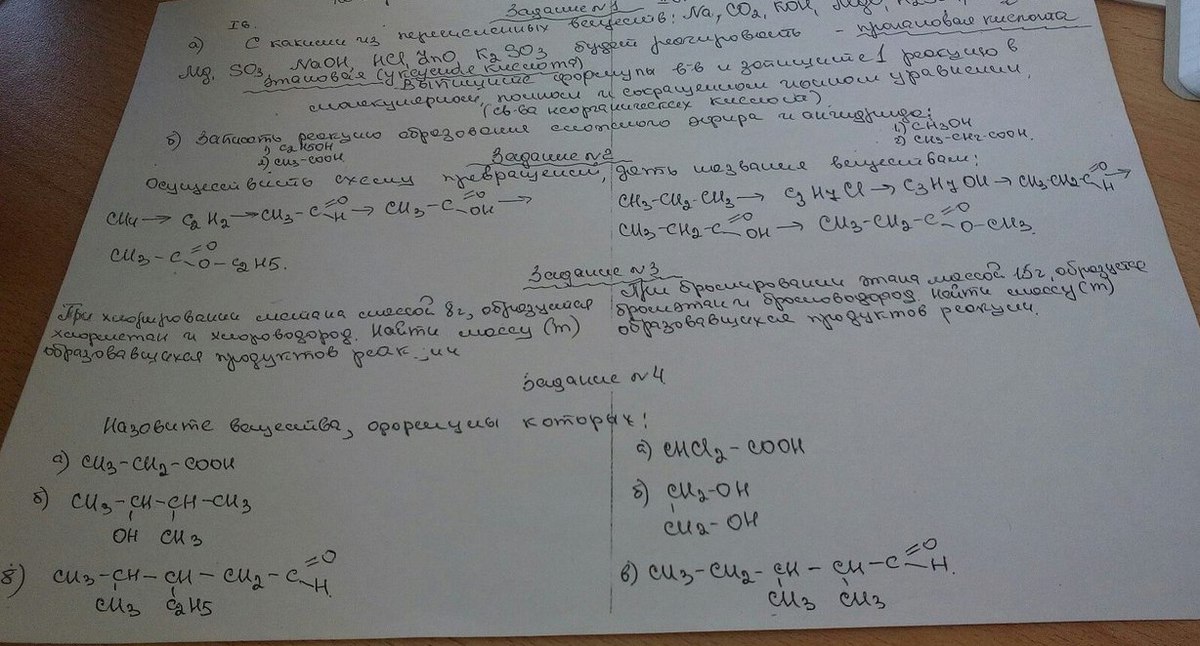 Задание №1
I в.
а) С какими из перечисленных веществ: Na, CO2, KOH, MgO,
Mg, SO3, NaOH, HCl, ZnO, K2SO3 будет реагировать - пропановая кислота
этановая (уксусная кислота)
Выпишите формулы в-в и запишите 1 реакцию в
молекулярном, полном и сокращенном ионном уравнении.
(св-ва неорганических кислот)
б) Записать реакцию образования сложного эфира и ангидрида:
1) C2H5OH
2) CH3-COOH
1) CH3OH
2) CH3-CH2-COOH.
Задание №2
Осуществить схему превращений, дать названия веществам:
CH4 → C2H2 → CH3-C=O H → CH3-C=O OH →
CH3-C=O O-C2H5.
CH3-CH2-CH3 → C3H7Cl → C3H7OH → CH3-CH2-C=O H →
CH3-CH2-C=O OH → CH3-CH2-C=O O-CH3.
Задание №3
При хлорировании метана массой 8г, образуется
хлорметан и хлороводород. Найти массу (m)
образовавшихся продуктов реакции
При бромировании этана массой 15г, образуется
бромэтан и бромоводород. Найти массу (m)
образовавшихся продуктов реакции.
Задание №4
Назовите вещества, формулы которых:
а) CH3-CH2-COOH
б) CH3-CH-CH-CH3
OH CH3
в) CH3-CH-CH-CH2-C=O H
CH3 C2H5
а) CHCl2-COOH
б) CH2-OH
CH2-OH
в) CH3-CH2-CH-CH-C=O H.
CH3 CH3